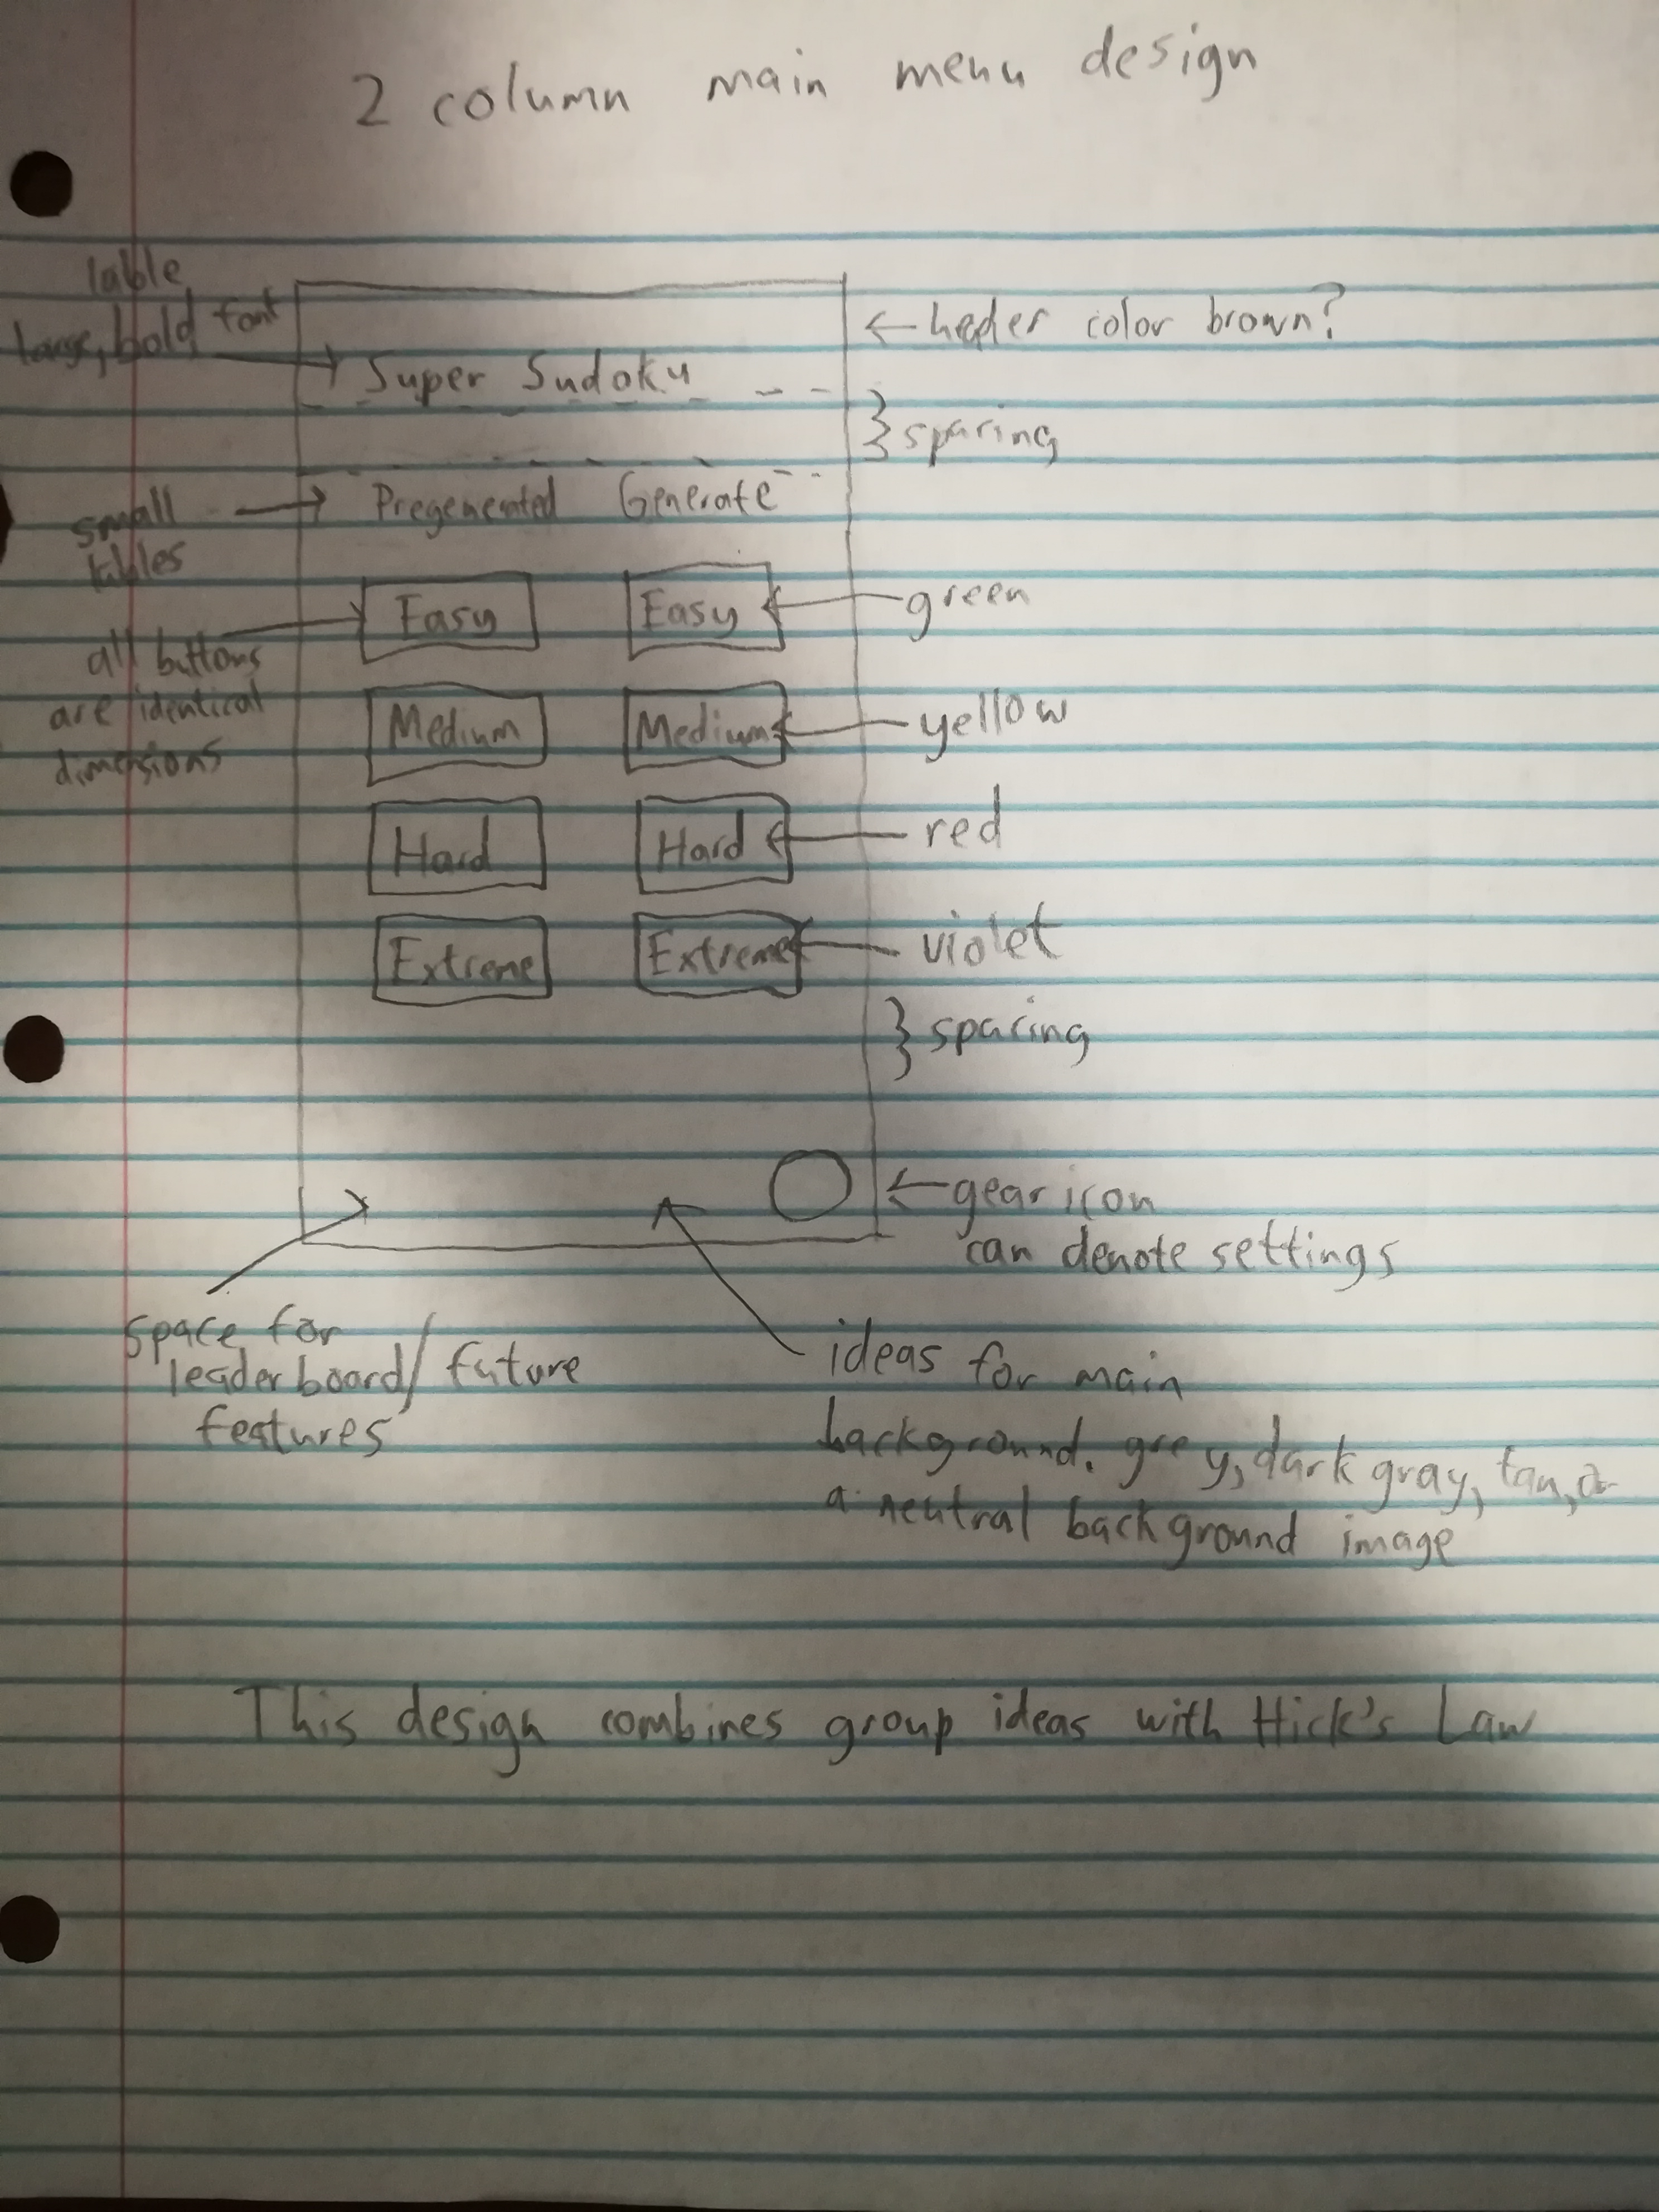 2 column main menu design
lable,
large, bold font
← header color brown?
Super Sudoku
sparing
small
lables
Pregenerated Generate
Easy Easy
green
all buttons
are identical
dimensions
Medium Medium
yellow
Hard Hard
red
Extreme Extreme
violet
sparing
← gear icon
can denote settings
space for
leader board/future
features
ideas for main
background. grey, dark gray, tan, or
a neutral background image
This design combines group ideas with Hick's Law